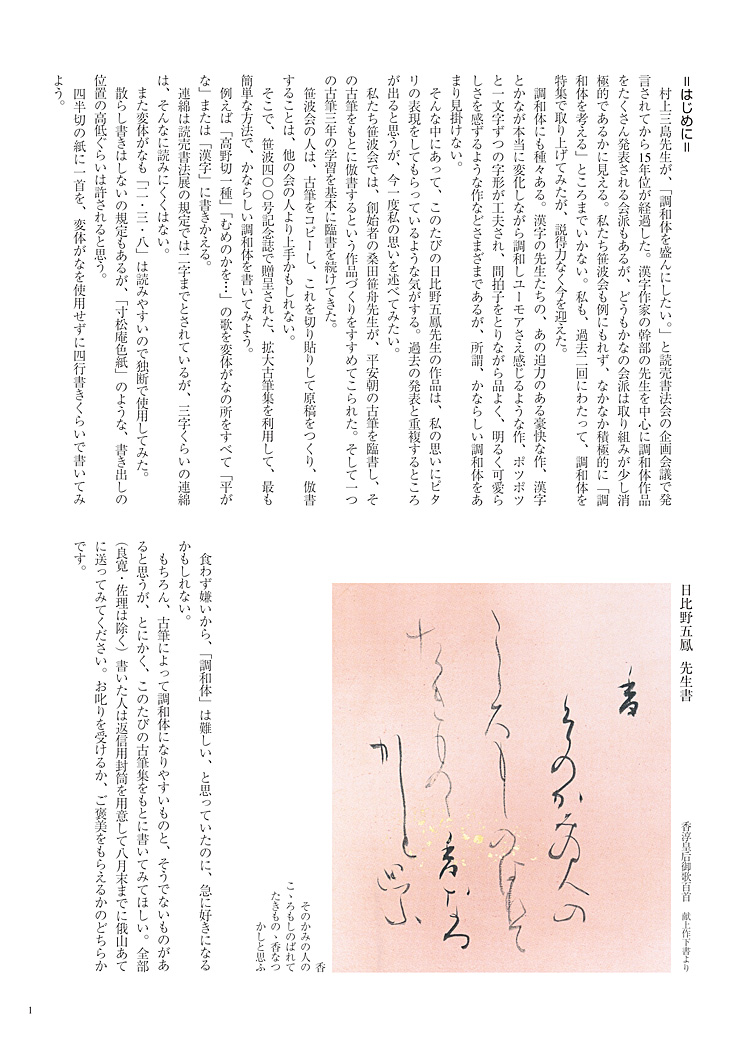 =はじめに=
　村上三島先生が、「調和体を盛んにしたい。」と読売書法会の企画会議で発
言されてから15年位が経過した。漢字作家の幹部の先生を中心に調和体作品
をたくさん発表される会派もあるが、どうもかなの会派は取り組みが少し消
極的であるかに見える。私たち笹波会も例にもれず、なかなか積極的に「調
和体を考える」ところまでいかない。私も、過去二回にわたって、調和体を
特集で取り上げてみたが、説得力なく今を迎えた。
　調和体にも種々ある。漢字の先生たちの、あの迫力のある豪快な作、漢字
とかなが本当に変化しながら調和しユーモアさえ感じるような作、ポツポツ
と一文字ずつの字形が工夫され、間拍子をとりながら品よく、明るく可愛ら
しさを感ずるような作などさまざまであるが、所謂、かならしい調和体をあ
まり見掛けない。
　そんな中にあって、このたびの日比野五鳳先生の作品は、私の思いにピタ
リの表現をしてもらっているような気がする。過去の発表と重複するところ
が出ると思うが、今一度私の思いを述べてみたい。
　私たち笹波会では、創始者の桑田笹舟先生が、平安朝の古筆を臨書し、そ
の古筆をもとに倣書するという作品づくりをすすめてこられた。そして一つ
の古筆三年の学習を基本に臨書を続けてきた。
　笹波会の人は、古筆をコピーし、これを切り貼りして原稿をつくり、倣書
することは、他の会の人より上手かもしれない。
　そこで、笹波四〇〇号記念誌で贈呈された、拡大古筆集を利用して、最も
簡単な方法で、かならしい調和体を書いてみよう。
　例えば「高野切一種」「むめのかを…」の歌を変体がなの所をすべて「平が
な」または「漢字」に書きかえる。
　連綿は読売書法展の規定では二字までとされているが、三字くらいの連綿
は、そんなに読みにくくはない。
　また変体がなも「二・三・八」は読みやすいので独断で使用してみた。
　散らし書きはしないの規定もあるが、「寸松庵色紙」のような、書き出しの
位置の高低ぐらいは許されると思う。
　四半切の紙に一首を、変体がなを使用せずに四行書きくらいで書いてみ
よう。
日比野五鳳　先生書
香淳皇后御歌百首　献上作下書より
香
そのかみの人の
こゝろもしのばれて
たきものゝ香なつ
かしと思ふ
香
そのかみの人の
こゝろもしのばれて
たきものゝ香なつ
かしと思ふ
　食わず嫌いから、「調和体」は難しい、と思っていたのに、急に好きになる
かもしれない。
　もちろん、古筆によって調和体になりやすいものと、そうでないものがあ
ると思うが、とにかく、このたびの古筆集をもとに書いてみてほしい。全部
（良寛・佐理は除く）書いた人は返信用封筒を用意して八月末までに俄山あて
に送ってみてください。お叱りを受けるか、ご褒美をもらえるかのどちらか
です。
1